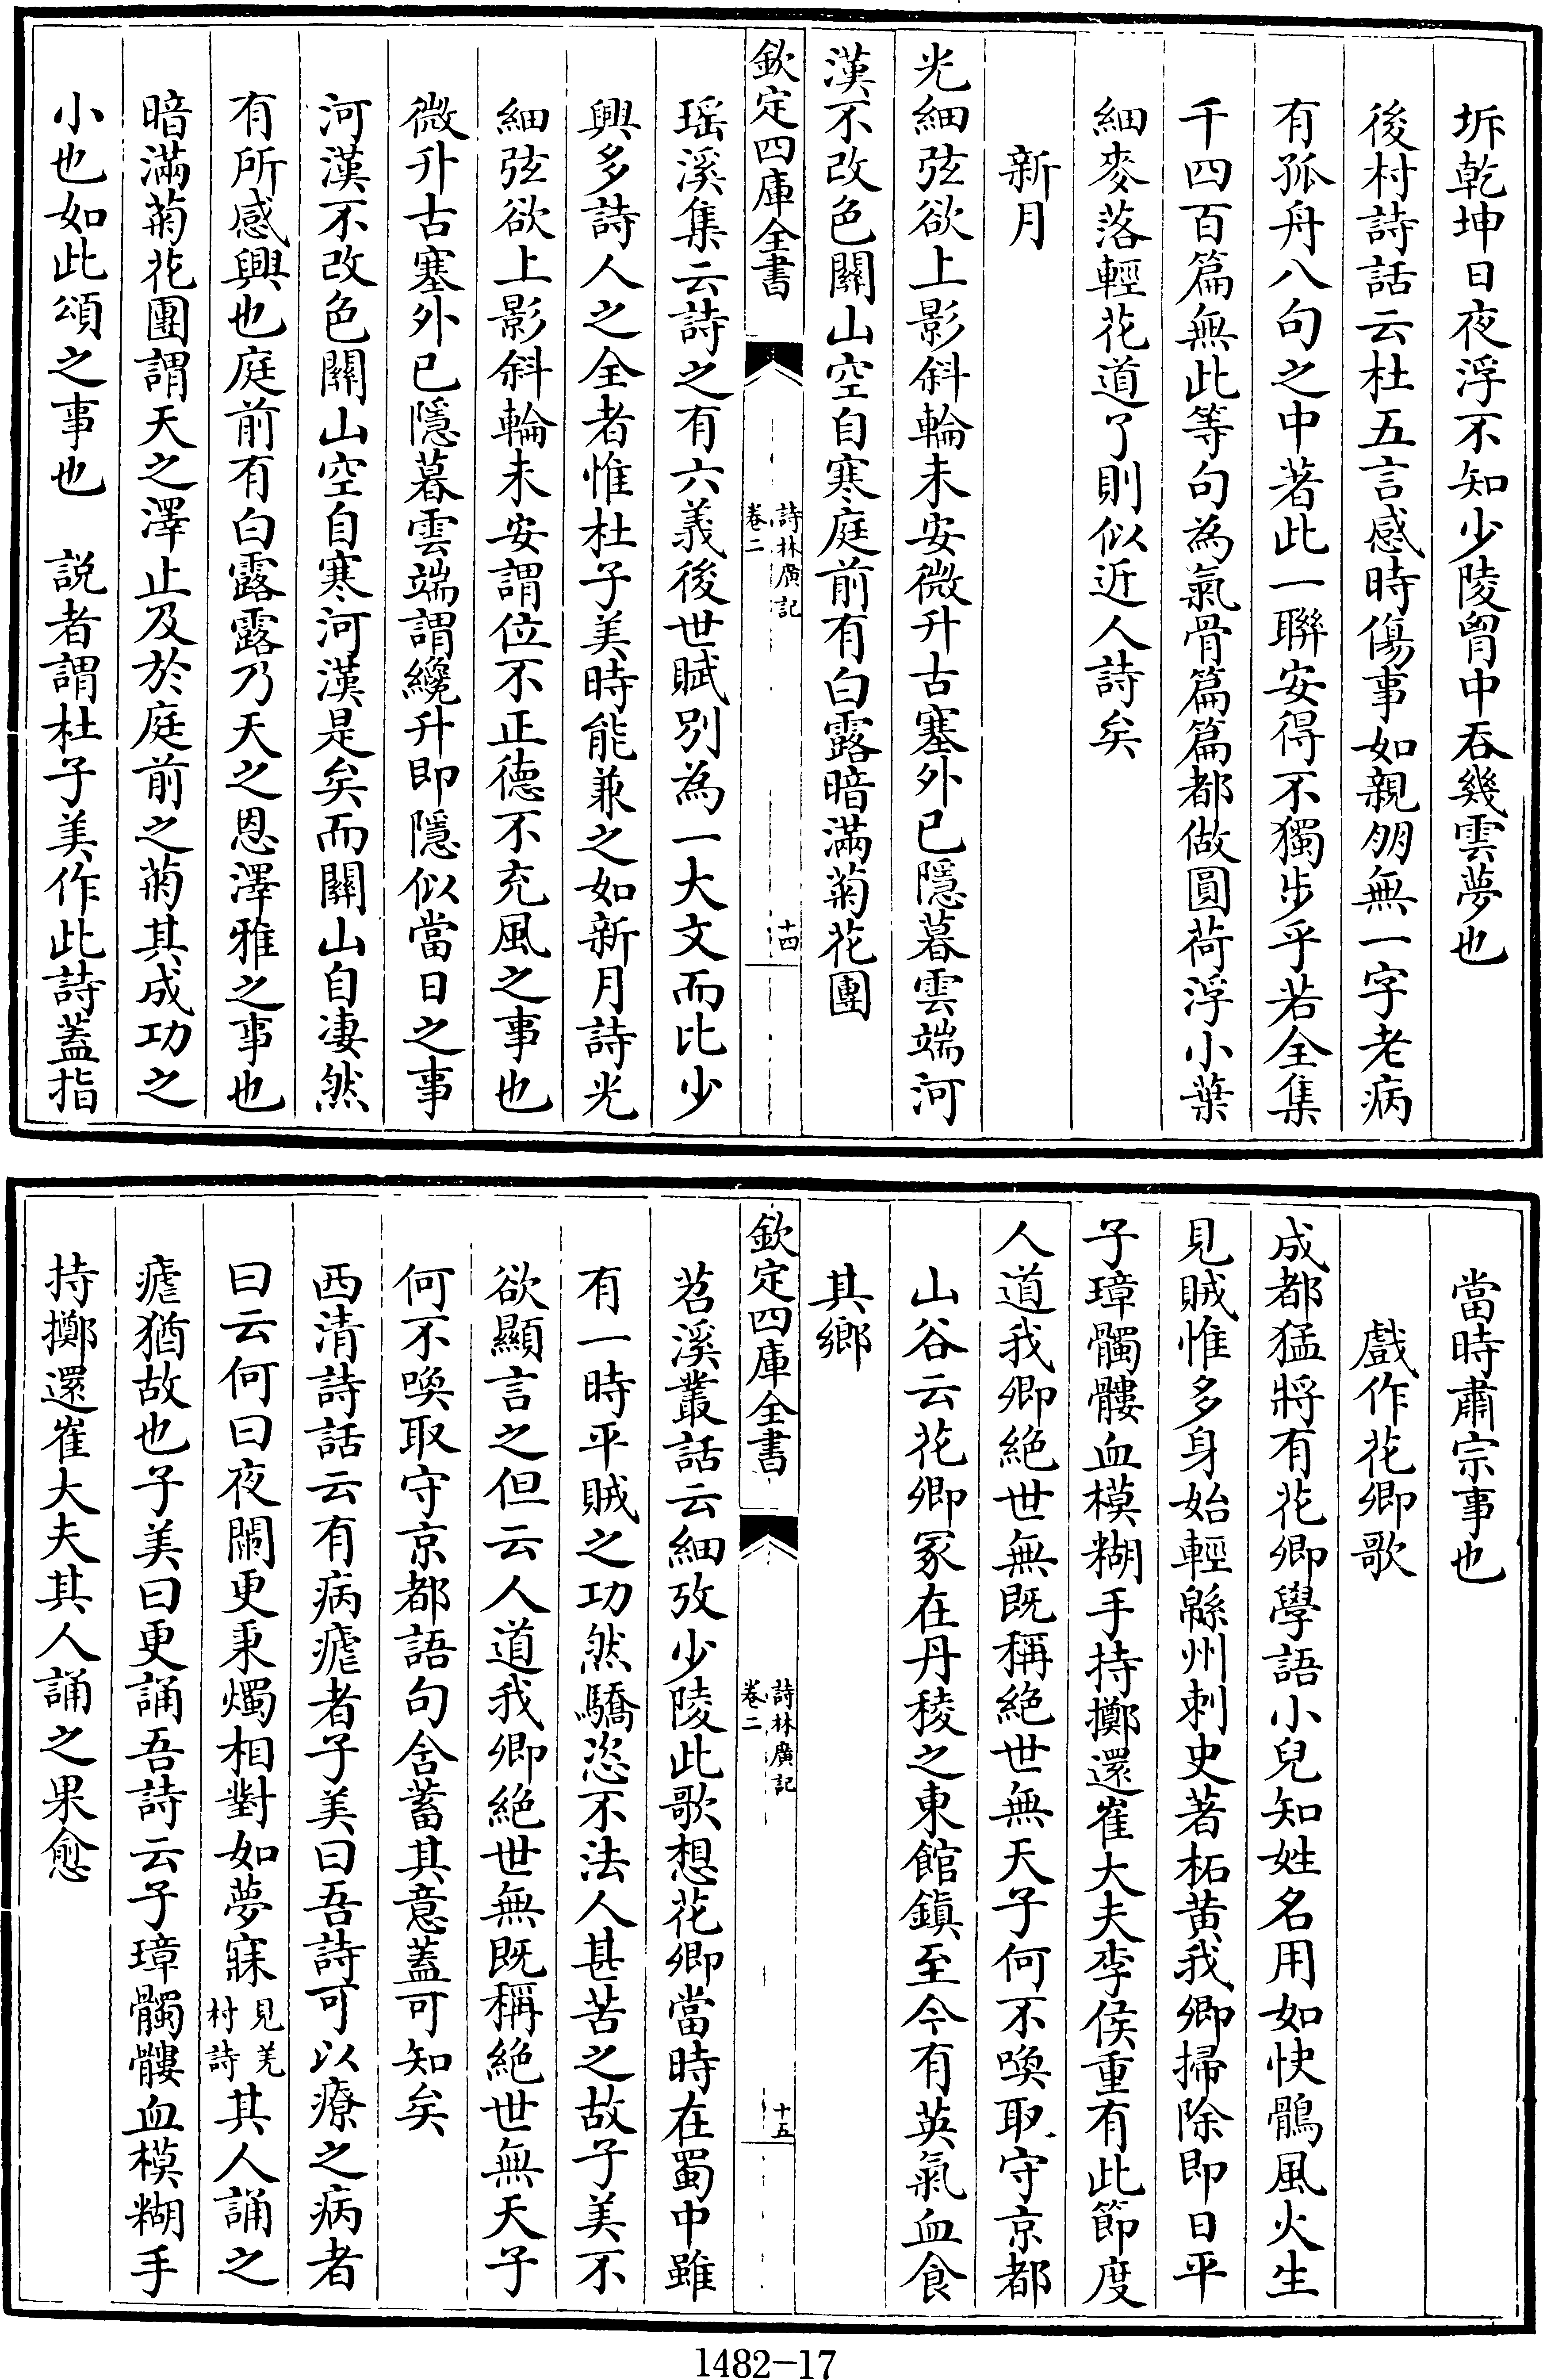 坼乾坤日夜浮不知少陵胷中吞幾雲夢也
後村詩話云杜五言感時傷事如親朋無一字老病
有孤舟八句之中著此一聯安得不獨步乎若全集
千四百篇無此等句為氣骨篇篇都做圓荷浮小葉
細麥落輕花道了則似近人詩矣
新月
光細弦欲上影斜輪未安微升古塞外已隱暮雲端河
漢不改色關山空自寒庭前有白露暗滿菊花團
欽定四庫全書
詩林廣記
卷二
十四
瑶溪集云詩之有六義後世賦別為一大文而比少
興多詩人之全者惟杜子美時能兼之如新月詩光
細弦欲上影斜輪未安謂位不正德不充風之事也
微升古塞外已隱暮雲端謂纔升即隱似當日之事
河漢不改色關山空自寒河漢是矣而關山自凄然
有所感興也庭前有白露露乃天之恩澤雅之事也
暗滿菊花團謂天之澤止及於庭前之菊其成功之
小也如此頌之事也　說者謂杜子美作此詩蓋指
當時肅宗事也
戲作花卿歌
成都猛將有花卿學語小兒知姓名用如快鶻風火生
見賊惟多身始輕緜州刺史著柘黄我卿掃除即日平
子璋髑髏血模糊手持擲還崔大夫李侯重有此節度
人道我卿絶世無既稱絶世無天子何不喚取守京都
山谷云花卿冢在丹稜之東館鎮至今有英氣血食
其鄉
欽定四庫全書
詩林廣記
卷二
十五
苕溪叢話云細攷少陵此歌想花卿當時在蜀中雖
有一時平賊之功然驕恣不法人甚苦之故子美不
欲顯言之但云人道我卿絶世無既稱絶世無天子
何不喚取守京都語句含蓄其意蓋可知矣
西清詩話云有病瘧者子美曰吾詩可以療之病者
曰云何曰夜闌更秉燭相對如夢寐見羌村詩其人誦之
瘧猶故也子美曰更誦吾詩云子璋髑髏血模糊手
持擲還崔大夫其人誦之果愈
1482-17